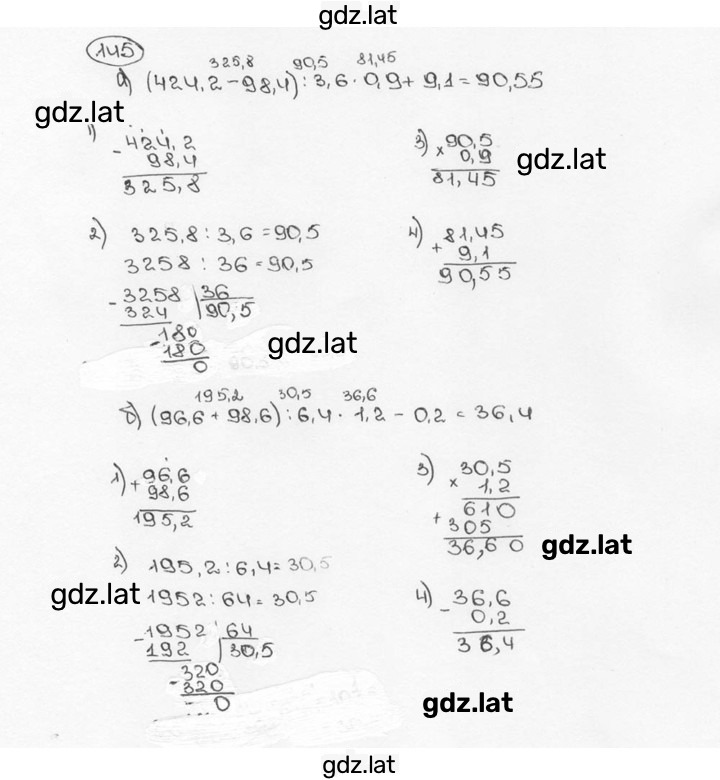 gdz.lat
145
325,8 90,5 81,45
а) (424,2 - 98,4) : 3,6 · 0,9 + 9,1 = 90,55
gdz.lat
1) - 424,2
98,4
325,8
3) × 90,5
0,9
81,45
gdz.lat
2) 325,8 : 3,6 = 90,5
3258 : 36 = 90,5
- 3258 36
324 90,5
- 180
180
0
gdz.lat
4) + 81,45
9,1
90,55
195,2 30,5 36,6
б) (96,6 + 98,6) : 6,4 · 1,2 - 0,2 = 36,4
1) + 96,6
98,6
195,2
2) 195,2 : 6,4 = 30,5
gdz.lat
1952 : 64 = 30,5
- 1952 64
192 30,5
- 320
320
0
3) × 30,5
1,2
+ 610
305
36,60
gdz.lat
4) - 36,6
0,2
36,4
gdz.lat
gdz.lat